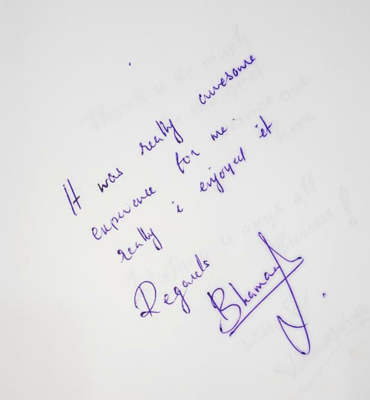 It was really awesome
experience for me.
really i enjoyed it
Regards